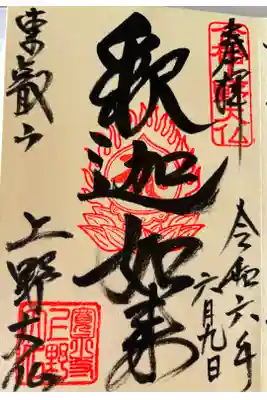 奉拝
令和六年
六月九日
釈迦如来
東叡山
上野大仏